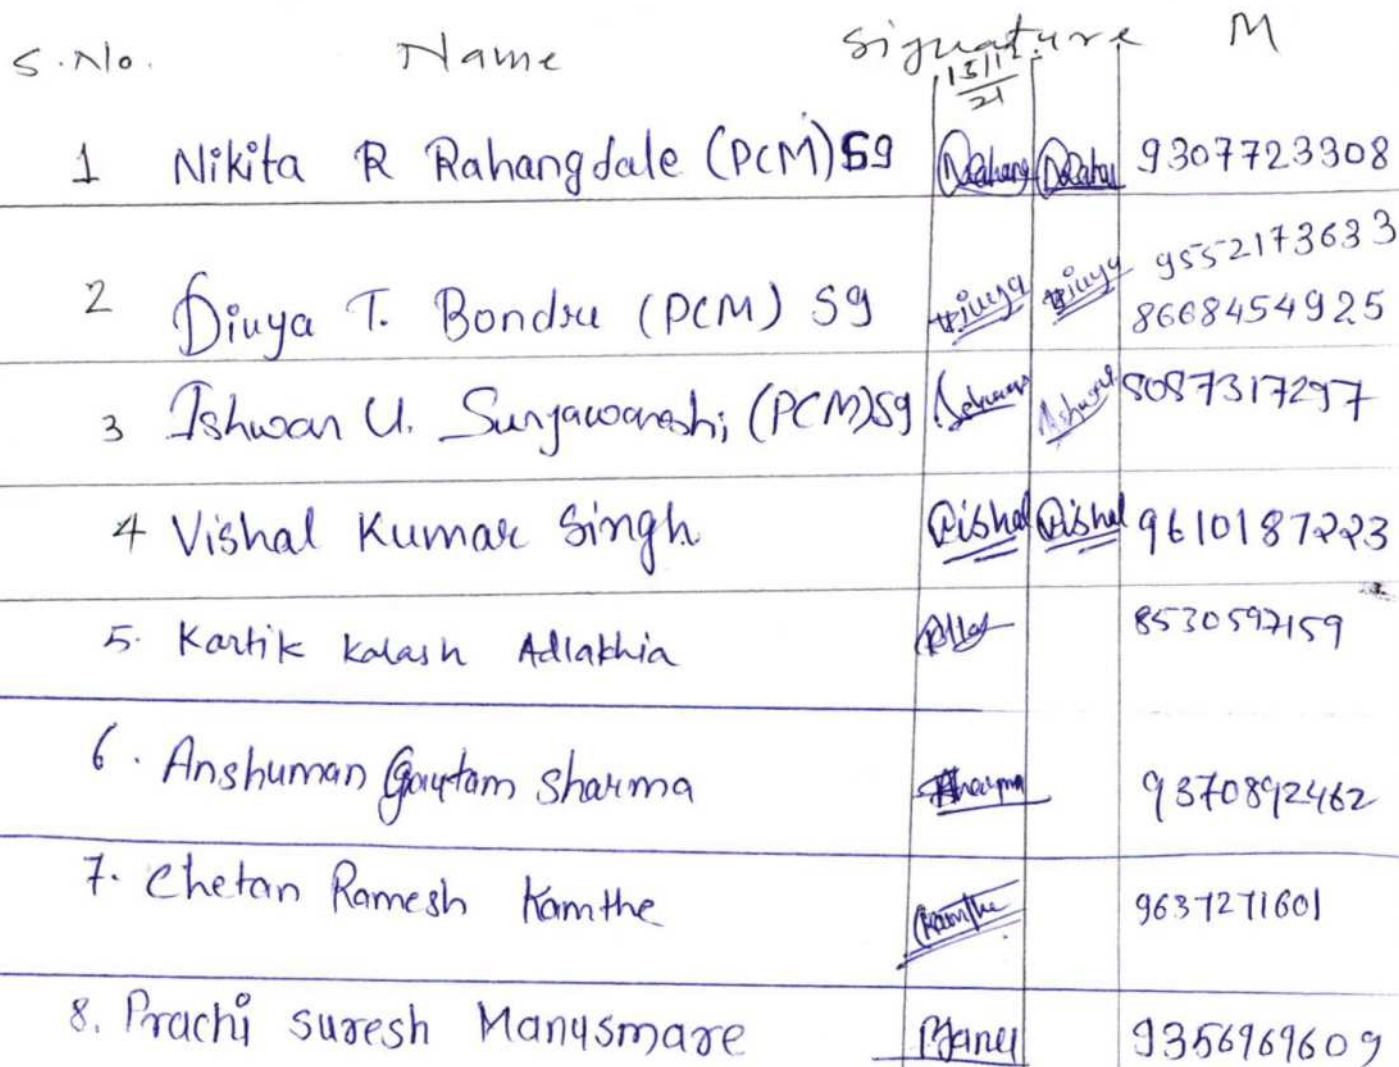 S.No. Name Signature M
15/12
21
1 Nikita R Rahangdale (PCM) Sg Rahang Raha 9307723308
9552173633
2 Divya T. Bondre (PCM) Sg Divya Divya
8668454925
3 Ishwar U. Suryawanshi (PCM) Sg Ishwar 8087317297
4 Vishal Kumar Singh Vishal Vishal 9610187223
5. Kartik Kalash Adlakhia 8530597159
6. Anshuman Gautam Sharma Sharma 9370892462
7. Chetan Ramesh Kamthe Kamthe 9637271601
8. Prachi Suresh Manusmare 9356969609